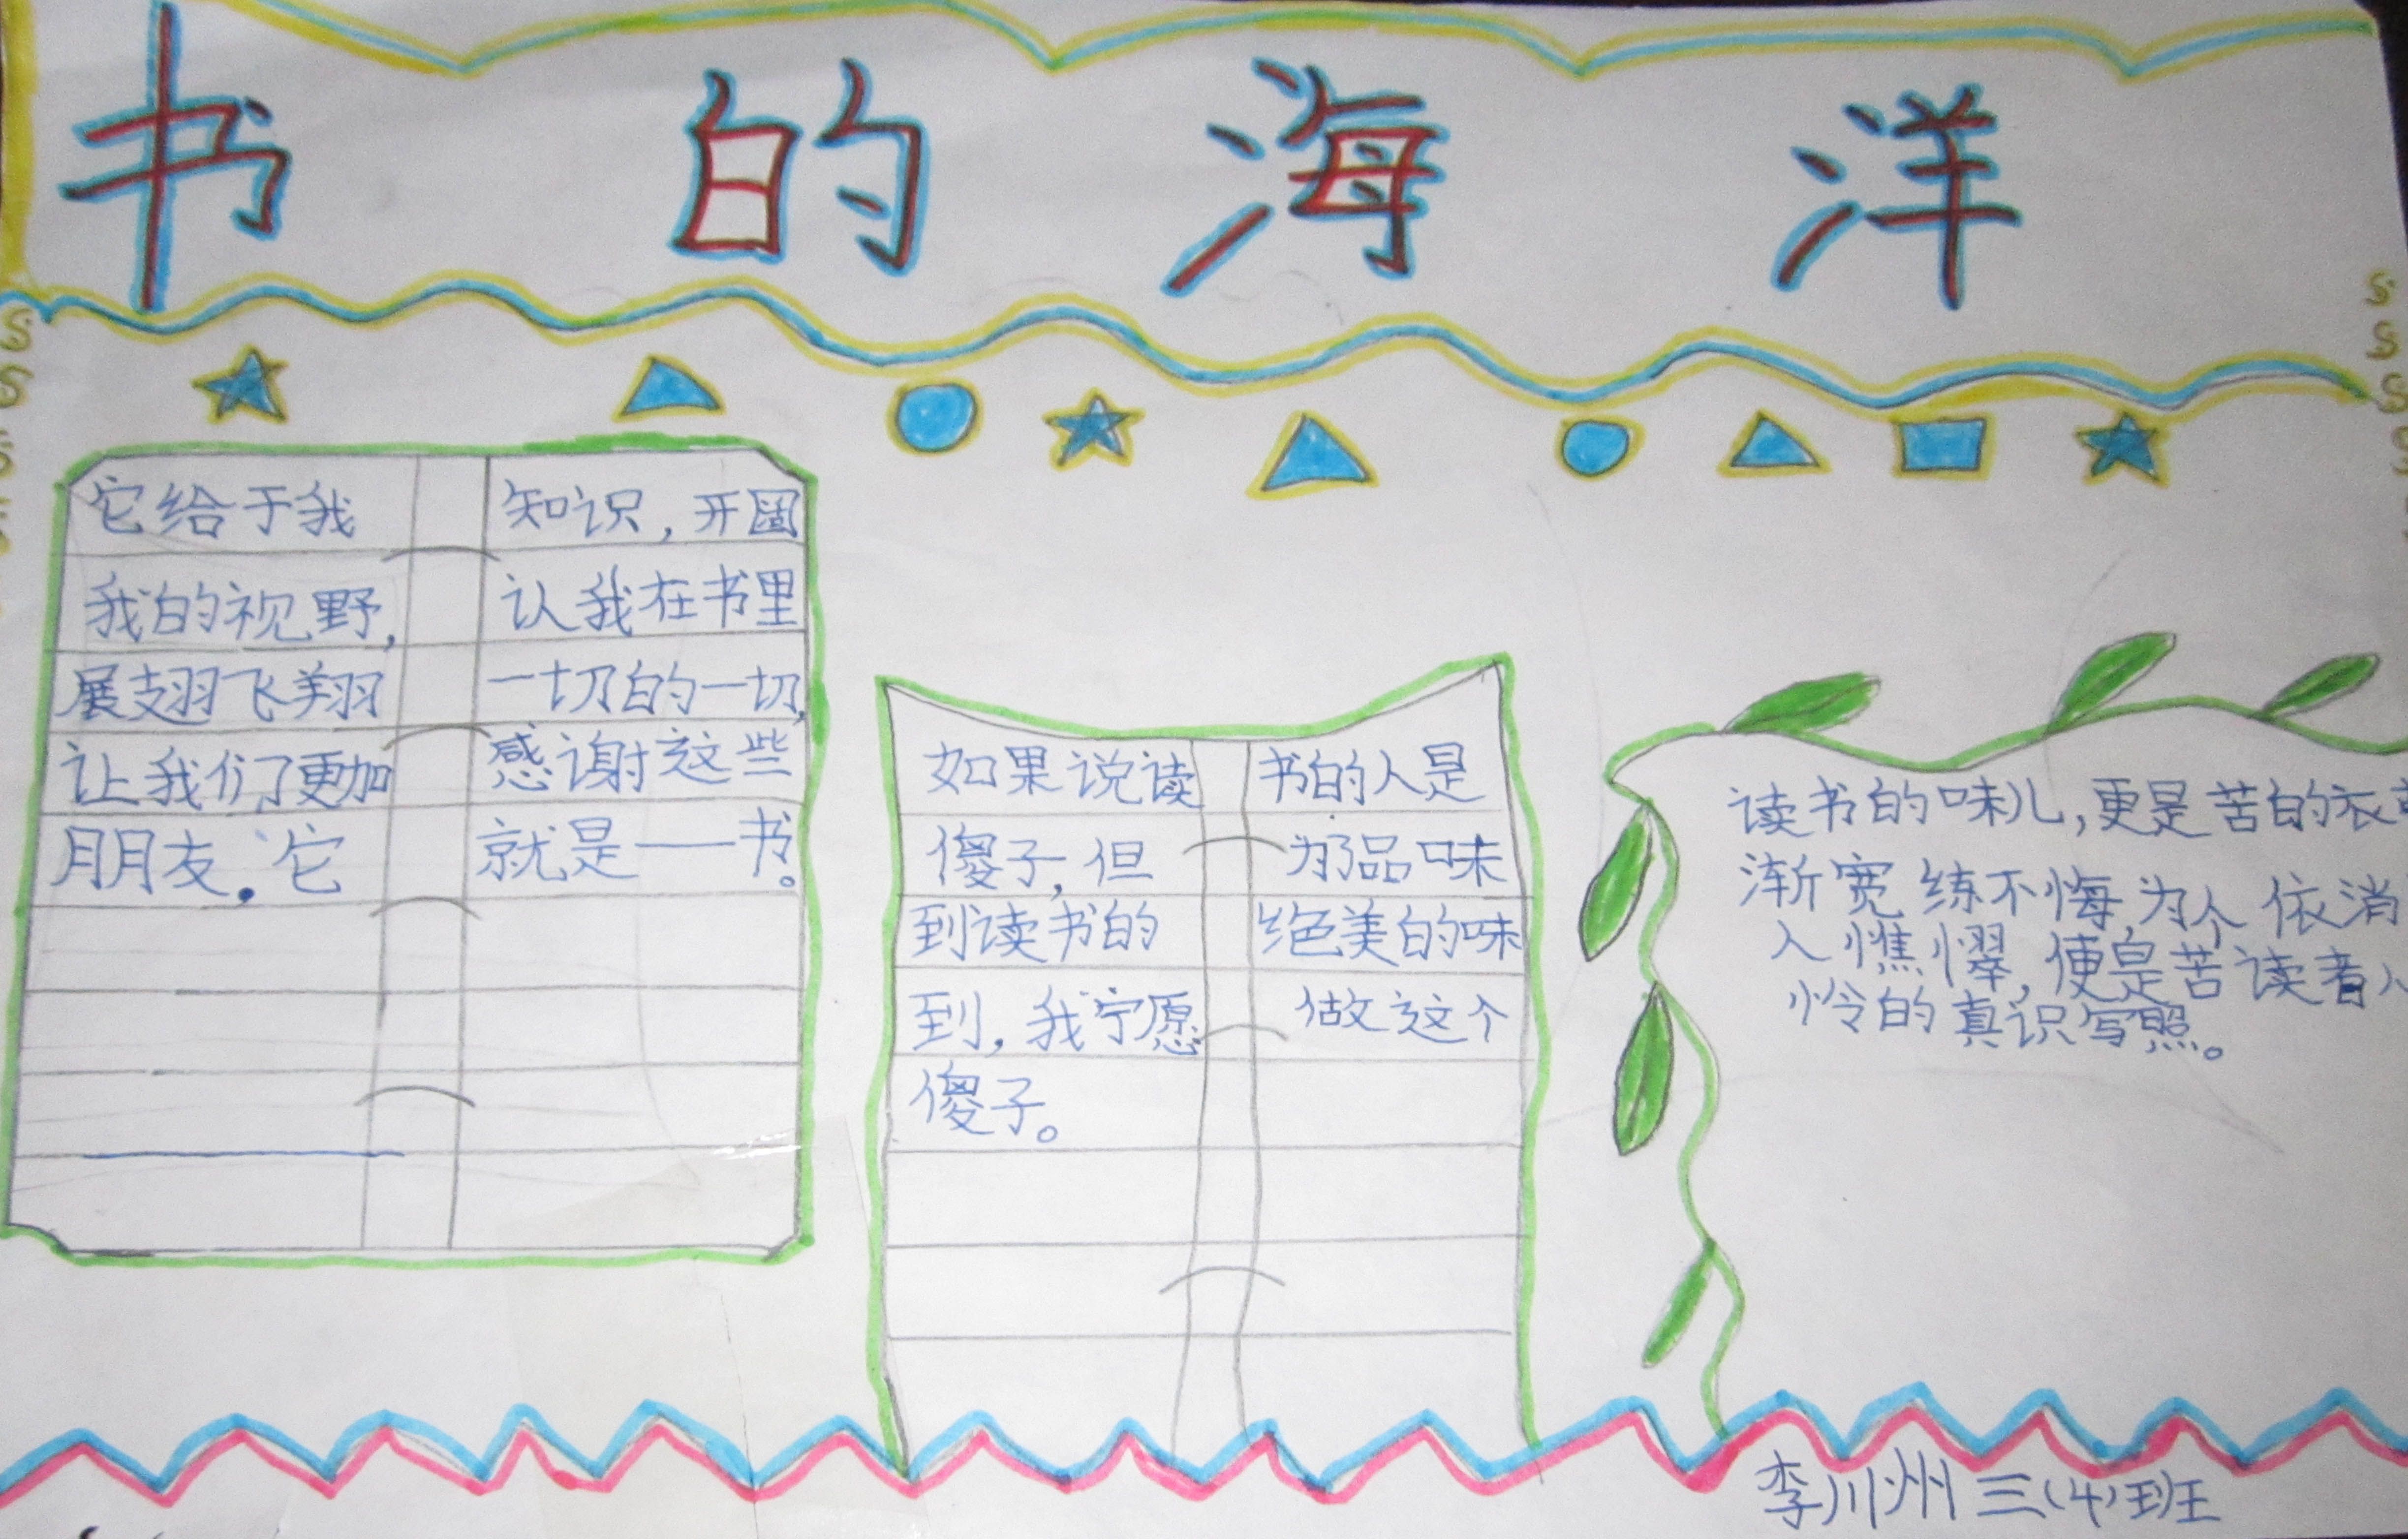 书的海洋
它给于我 知识，开阔
我的视野， 认我在书里
展翅飞翔 一切的一切，
让我们了更加 感谢这些
朋友。它 就是——书。
如果说读 书的人是
傻子，但 为了品味
到读书的 绝美的味
到，我宁愿 做这个
傻子。
读书的味儿，更是苦的衣
渐宽练不悔，为个依消
入憔悴，便是苦读者心
怜的真识写照。
李川州三（4）班